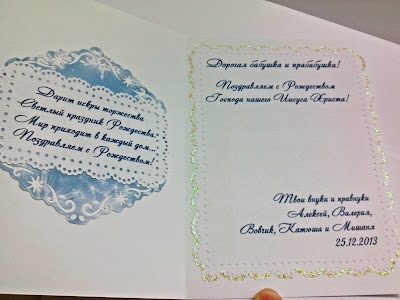 Дарит искры торжества
Светлый праздник Рождества.
Мир приходит в каждый дом...
Поздравляем с Рождеством!
Дорогая бабушка и прабабушка!
Поздравляем с Рождеством
Господа нашего Иисуса Христа!
Твои внуки и правнуки
Алексей, Валерия,
Вовчик, Катюша и Мишаня
25.12.2013